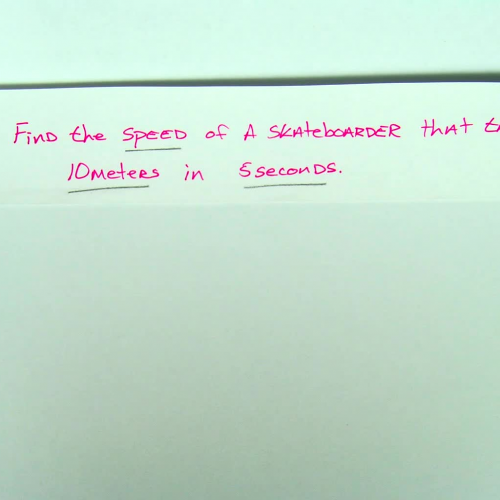 Find the SPEED of A SKAtebOARDER thAt
10meters in 5seconds.